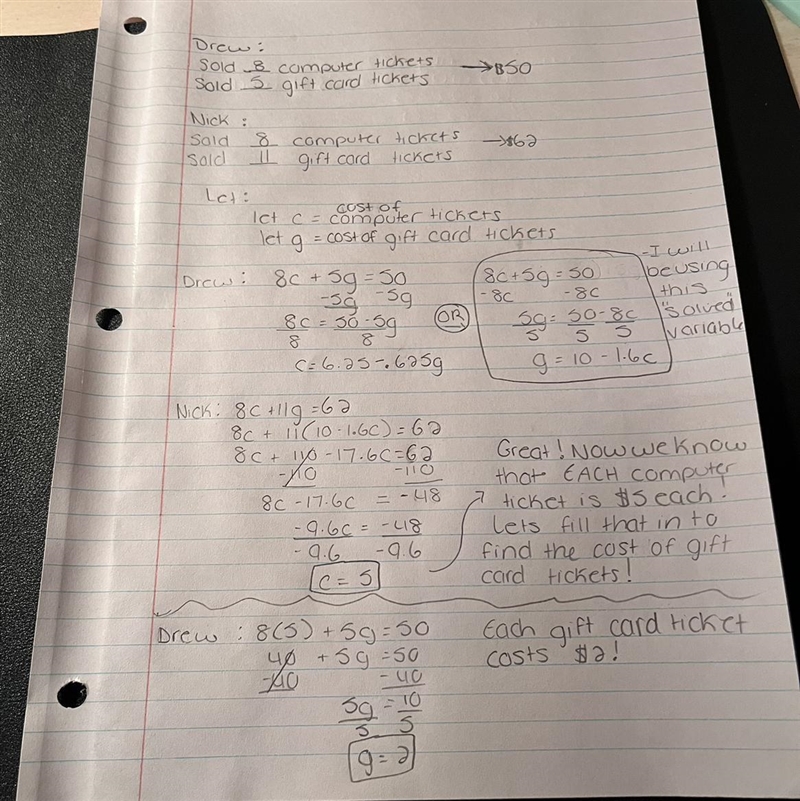 Drew:
Sold 8 computer tickets → $50
Sold 5 gift card tickets
Nick:
Sold 8 computer tickets → $62
Sold 11 gift card tickets
Let:
let c = cost of computer tickets
let g = cost of gift card tickets
Drew: 8c + 5g = 50
-5g -5g
8c = 50 - 5g
8 8
c = 6.25 - .625g
OR
8c + 5g = 50
-8c -8c
5g = 50 - 8c
5 5 5
g = 10 - 1.6c
- I will
be using
this
"solved"
variable
Nick: 8c + 11g = 62
8c + 11(10 - 1.6c) = 62
8c + 110 - 17.6c = 62
-110 -110
8c - 17.6c = -48
-9.6c = -48
-9.6 -9.6
c = 5
Great! Now we know
that EACH computer
ticket is $5 each.
Lets fill that in to
find the cost of gift
card tickets!
Drew: 8(5) + 5g = 50
40 + 5g = 50
-40 -40
5g = 10
5 5
g = 2
Each gift card ticket
costs $2!